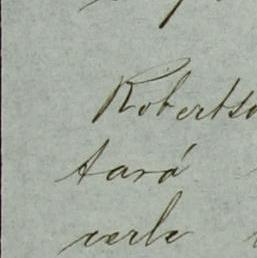 Robertso
tará
cerle